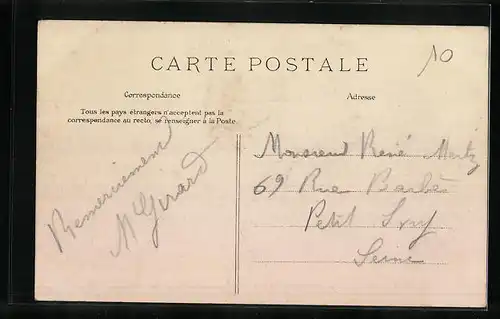 10
CARTE POSTALE
Correspondance
Adresse
Tous les pays étrangers n'acceptent pas la
correspondance au recto, se renseigner à la Poste.
Remerciement
M Girard
Monsieur René
69 Rue Barbès
Petit Ivry
Seine